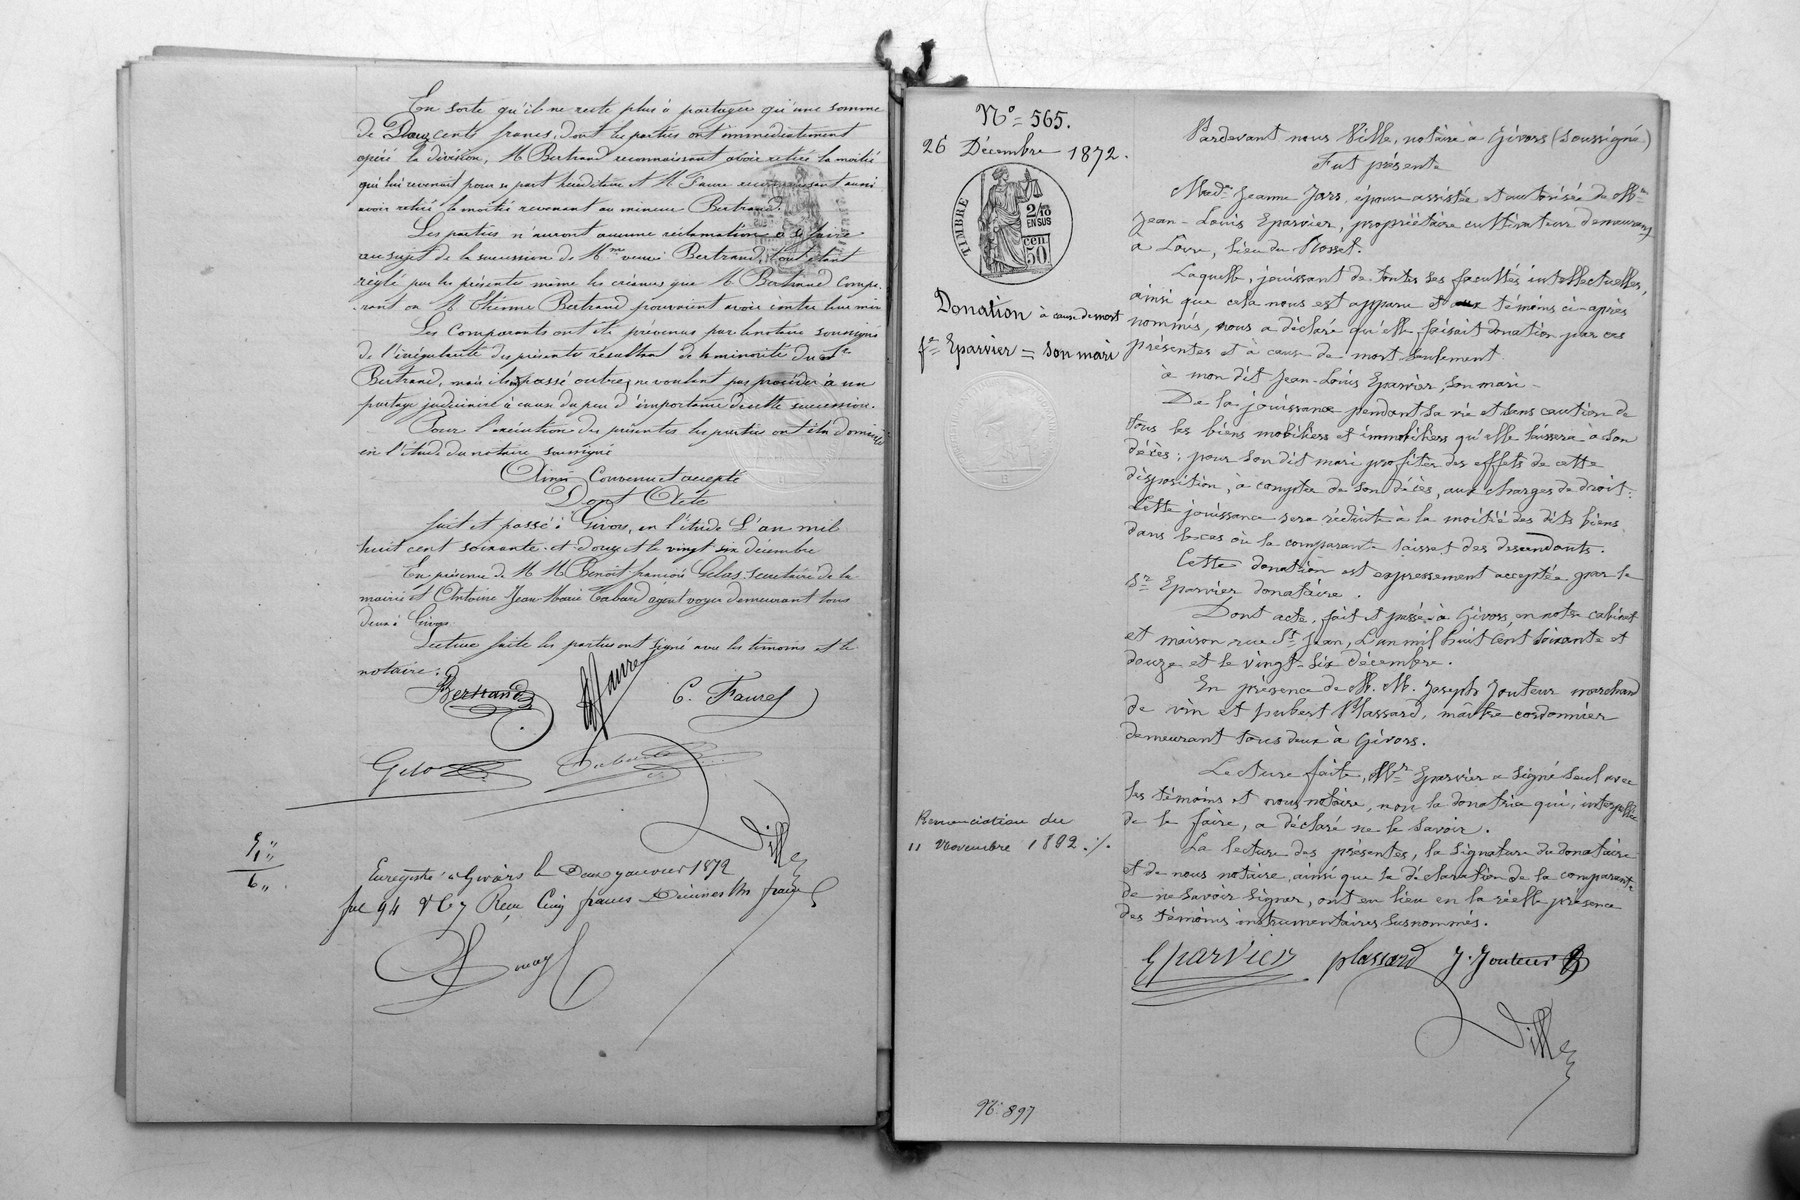 En sorte qu'il ne reste plus à partager qu'une somme
de Douze cents francs, dont les parties ont immédiatement
opéré la division, M. Bertrand reconnaissant avoir retiré la moitié
qui lui revenait pour sa part héréditaire et M. Faure reconnaissant aussi
avoir retiré la moitié revenant au mineur Bertrand.
Les parties n'auront aucune réclamation à se faire
au sujet de la succession de Mme veuve Bertrand, tout étant
réglé par les présentes même les créances que M. Bertrand compa-
rant ou M. Etienne Bertrand pourraient avoir contre leur mère
Les Comparants ont été prévenus par le notaire soussigné
de l'irrégularité des présentes résultant de la minorité du Sr
Bertrand, mais ils ont passé outre, ne voulant pas procéder à un
partage judiciaire à cause du peu d'importance de cette succession.
Pour l'exécution des présentes les parties ont élu domicile
en l'étude du notaire soussigné
Ainsi Convenu et accepté
Dont Acte
fait et passé à Givors, en l'étude L'an mil
huit cent soixante et douze et le vingt six décembre
En présence de M M Benoît françois Gelas secrétaire de la
mairie et Antoine Jean Marie Tabard agent voyer demeurant tous
deux à Givors
Lecture faite les parties ont signé avec les témoins et le
notaire.
Bertrand Faure C. Faure
Gelas Tabard
Ville
5,,
1,,
6,,
Enregistré à Givors le Deux janvier 1872
fol 94 Vo C 7 Reçu Cinq francs Décimes Un franc
N° 565.
26 Décembre 1872.
TIMBRE
2/10
EN SUS
cen
50
Donation à cause de mort
fe Eparvier = son mari
Renonciation du
11 Novembre 1892 ./.
N° 897
Pardevant nous Ville, notaire à Givors (soussigné)
Fut présente
Made Jeanne Jars, épouse assistée et autorisée de Mr
Jean-Louis Eparvier, propriétaire cultivateur demeurant
à Loire, lieu du Rosset.
Laquelle, jouissant de toutes ses facultés intellectuelles,
ainsi que cela nous est apparu et aux témoins ci-après
nommés, nous a déclaré qu'elle faisait donation par ces
présentes et à cause de mort seulement
à mon dit Jean-Louis Eparvier, son mari -
De la jouissance pendant sa vie et sans caution de
tous les biens mobiliers et immobiliers qu'elle laissera à son
décès; pour son dit mari profiter des effets de cette
disposition, à compter de son décès, aux charges de droit.
Cette jouissance sera réduite à la moitié des dits biens
dans le cas où la comparante laisse des descendants.
Cette donation est expressement acceptée par le
Sr Eparvier donataire.
Dont acte, fait et passé à Givors, en notre cabinet
et maison rue St Jean, L'an mil huit cent soixante et
douze et le vingt-six décembre.
En présence de M. M. Joseph Jouteur marchand
de vin et hubert Plassard, maître cordonnier
demeurant tous deux à Givors.
Lecture faite, Mr Eparvier a signé seul avec
les témoins et nous notaire, non la donatrice qui, interpellée
de le faire, a déclaré ne le savoir.
La lecture des présentes, la signature du donataire
et de nous notaire, ainsi que la déclaration de la comparante
de ne savoir signer, ont eu lieu en la réelle présence
des témoins instrumentaires susnommés.
Eparvier plassard J. Jouteur
Ville